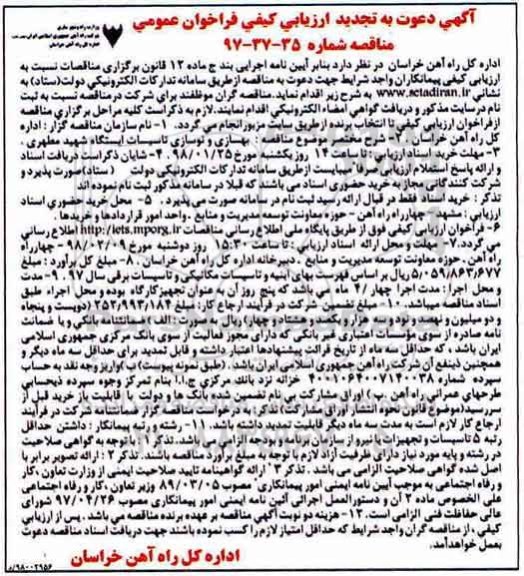 آگهي دعوت به تجديد ارزيابي كيفي فراخوان عمومي
مناقصه شماره ۳۵-۳۷-۹۷
اداره كل راه آهن خراسان در نظر دارد بنابر آيين نامه اجرايي بند ج ماده ۱۲ قانون برگزاري مناقصات نسبت به
ارزيابي كيفي پيمانكاران واجد شرايط جهت دعوت به مناقصه ازطريق سامانه تداركات الكترونيكي دولت(ستاد) به
نشاني www.setadiran.ir به شرح زير اقدام نمايد.مناقصه گران موظفند براي شركت درمناقصه نسبت به ثبت
نام درسايت مذكور و دريافت گواهي امضاء الكترونيكي اقدام نمايند.لازم به ذكراست كليه مراحل برگزاري مناقصه
ازفراخوان ارزيابي كيفي تا انتخاب برنده ازطريق سايت مزبورانجام مي گردد. ۱- نام سازمان مناقصه گزار : اداره
كل راه آهن خراسان ۲- شرح مختصر موضوع مناقصه : بهسازي و نوسازي تاسيسات ايستگاه شهيد مطهري .
۳- مهلت خريد اسناد ارزيابي : تا ساعت ۱۴ روز يكشنبه مورخ ۹۸/۰۱/۲۵. ۴- شايان ذكراست دريافت اسناد
و ارائه پاسخ استعلام ارزيابي صرفا ميبايست ازطريق سامانه تداركات الكترونيكي دولت (ستاد)صورت پذيرد و
شركت كنندگاني مجاز به خريد حضوري اسناد مي باشند كه قبلا در سامانه مذكور ثبت نام نموده اند.
تذكر : خريد اسناد فقط در قبال ارائه رسيد ثبت نام در سامانه صورت مي پذيرد . ۵- محل خريد حضوري اسناد
ارزيابي : مشهد - چهارراه راه آهن - حوزه معاونت توسعه مديريت و منابع . واحد امور قراردادها و خريدها .
۶- فراخوان ارزيابي كيفي فوق از طريق پايگاه ملي اطلاع رساني مناقصات http://iets.mporg.ir اطلاع رساني
مي گردد.۷- مهلت و محل ارائه اسناد ارزيابي : تا ساعت ۱۵:۳۰ روز دوشنبه مورخ ۹۸/۰۲/۰۹- چهارراه
راه آهن . حوزه معاونت توسعه مديريت و منابع . دبيرخانه اداره كل راه آهن خراسان .۸- مبلغ كل برآورد : مبلغ
۵/۰۵۹/۸۶۳/۶۷۷ ريال بر اساس فهرست بهاي ابنيه و تاسيسات مكانيكي و تاسيسات برقي سال ۹۷ .۹- مدت
و محل اجرا: مدت اجرا چهار /۴ ماه مي باشد كه پنج روز آن به عنوان تجهيزكارگاه بوده ومحل اجراء طبق
اسناد مناقصه ميباشد. ۱۰- مبلغ تضمين شركت در فرآيند ارجاع كار: مبلغ ۲۵۲/۹۹۳/۱۸۴ (دويست و پنجاه
و دو ميليون و نهصد و نود و سه هزار و يكصد و هشتاد و چهار)ريال به صورت : الف )ضمانتنامه بانكي و يا ضمانت
نامه صادره از سوي مؤسسات اعتباري غير بانكي كه داراي مجوز فعاليت از سوي بانك مركزي جمهوري اسلامي
ايران باشد ، كه حداقل سه ماه از تاريخ قرائت پيشنهادها اعتبار داشته و قابل تمديد براي حداقل سه ماه ديگر و
همچنين ذينفع آن شركت راه آهن جمهوري اسلامي ايران باشد . (طبق نمونه پيوست) ب)واريز وجه نقد به حساب
سپرده شماره ۴۰۰۱۰۶۴۰۰۷۱۴۰۰۳۸ خزانه نزد بانك مركزي ج.ا.ا بنام تمركز وجوه سپرده ذيحسابي
طرحهاي عمراني راه آهن ج) اوراق مشاركت بي نام تضمين شده بانك ها و دولت با قابليت باز خريد قبل از
سررسيد(موضوع قانون نحوه انتشار اوراق مشاركت) تذكر: به درخواست مناقصه گزار ضمانتنامه شركت در فرآيند
ارجاع كار لازم است به مدت سه ماه ديگر قابليت تمديد داشته باشد. ۱۱- رشته و رتبه پيمانكار : داشتن حداقل
رتبه ۵ تاسيسات و تجهيزات يا نيرو از سازمان برنامه وبودجه الزامي مي باشد. تذكر ۱ : با توجه به گواهي صلاحيت
در رشته و پايه مورد نياز داراي ظرفيت آزاد لازم با توجه به مبلغ برآورد مناقصه باشند. تذكر ۲ : ارائه تصوير برابر با
اصل شده گواهي صلاحيت الزامي مي باشد . تذكر ۳ ارائه گواهينامه تاييد صلاحيت ايمني از وزارت تعاون ،كار
و رفاه اجتماعي به موجب آيين نامه ايمني امور پيمانكاري مصوب ۸۹/۰۳/۰۵ وزير تعاون ،كار و رفاه اجتماعي
علي الخصوص ماده ۲ آن و دستورالعمل اجرائي آئين نامه ايمني امور پيمانكاري مصوب ۹۷/۰۴/۲۶ شوراي
عالي حفاظت فني الزامي است. ۱۲- هزينه دو نوبت آگهي مناقصه بر عهده برنده مناقصه مي باشد . پس از ارزيابي
كيفي ، از مناقصه گران واجد شرايط كه حداقل امتياز لازم را كسب نموده باشند جهت دريافت اسناد مناقصه دعوت
بعمل خواهدآمد.
اداره كل راه آهن خراسان
۹۸۰۰۲۹۵۶/د